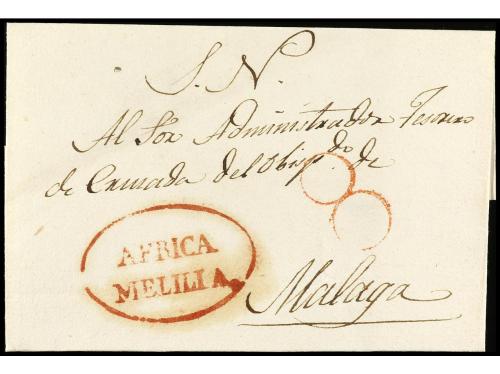 S. N.
Al Sor Administrador Tesorero
de Cruzada del Obispdo. de
Malaga
AFRICA
MELILIA